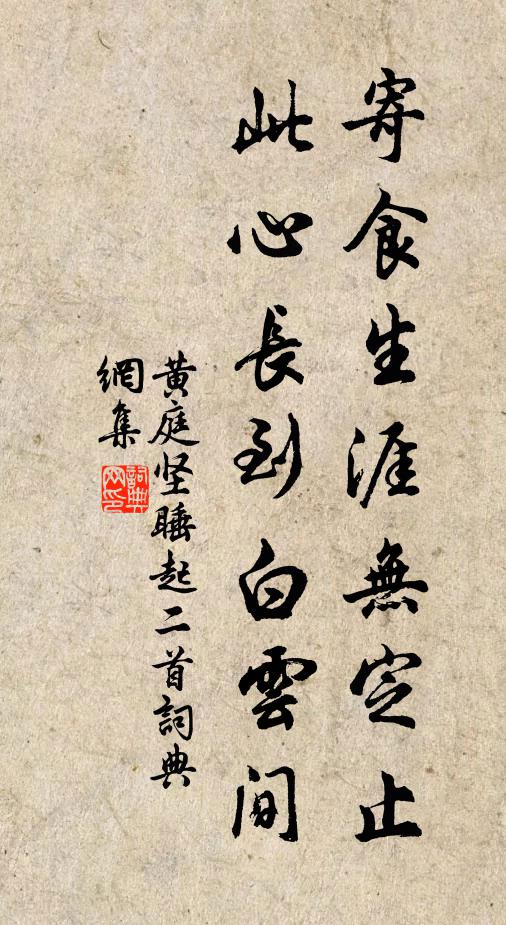 寄食生涯無定止
此心長到白雲間
黄庭坚睡起二首詞典
網集
詞典網印